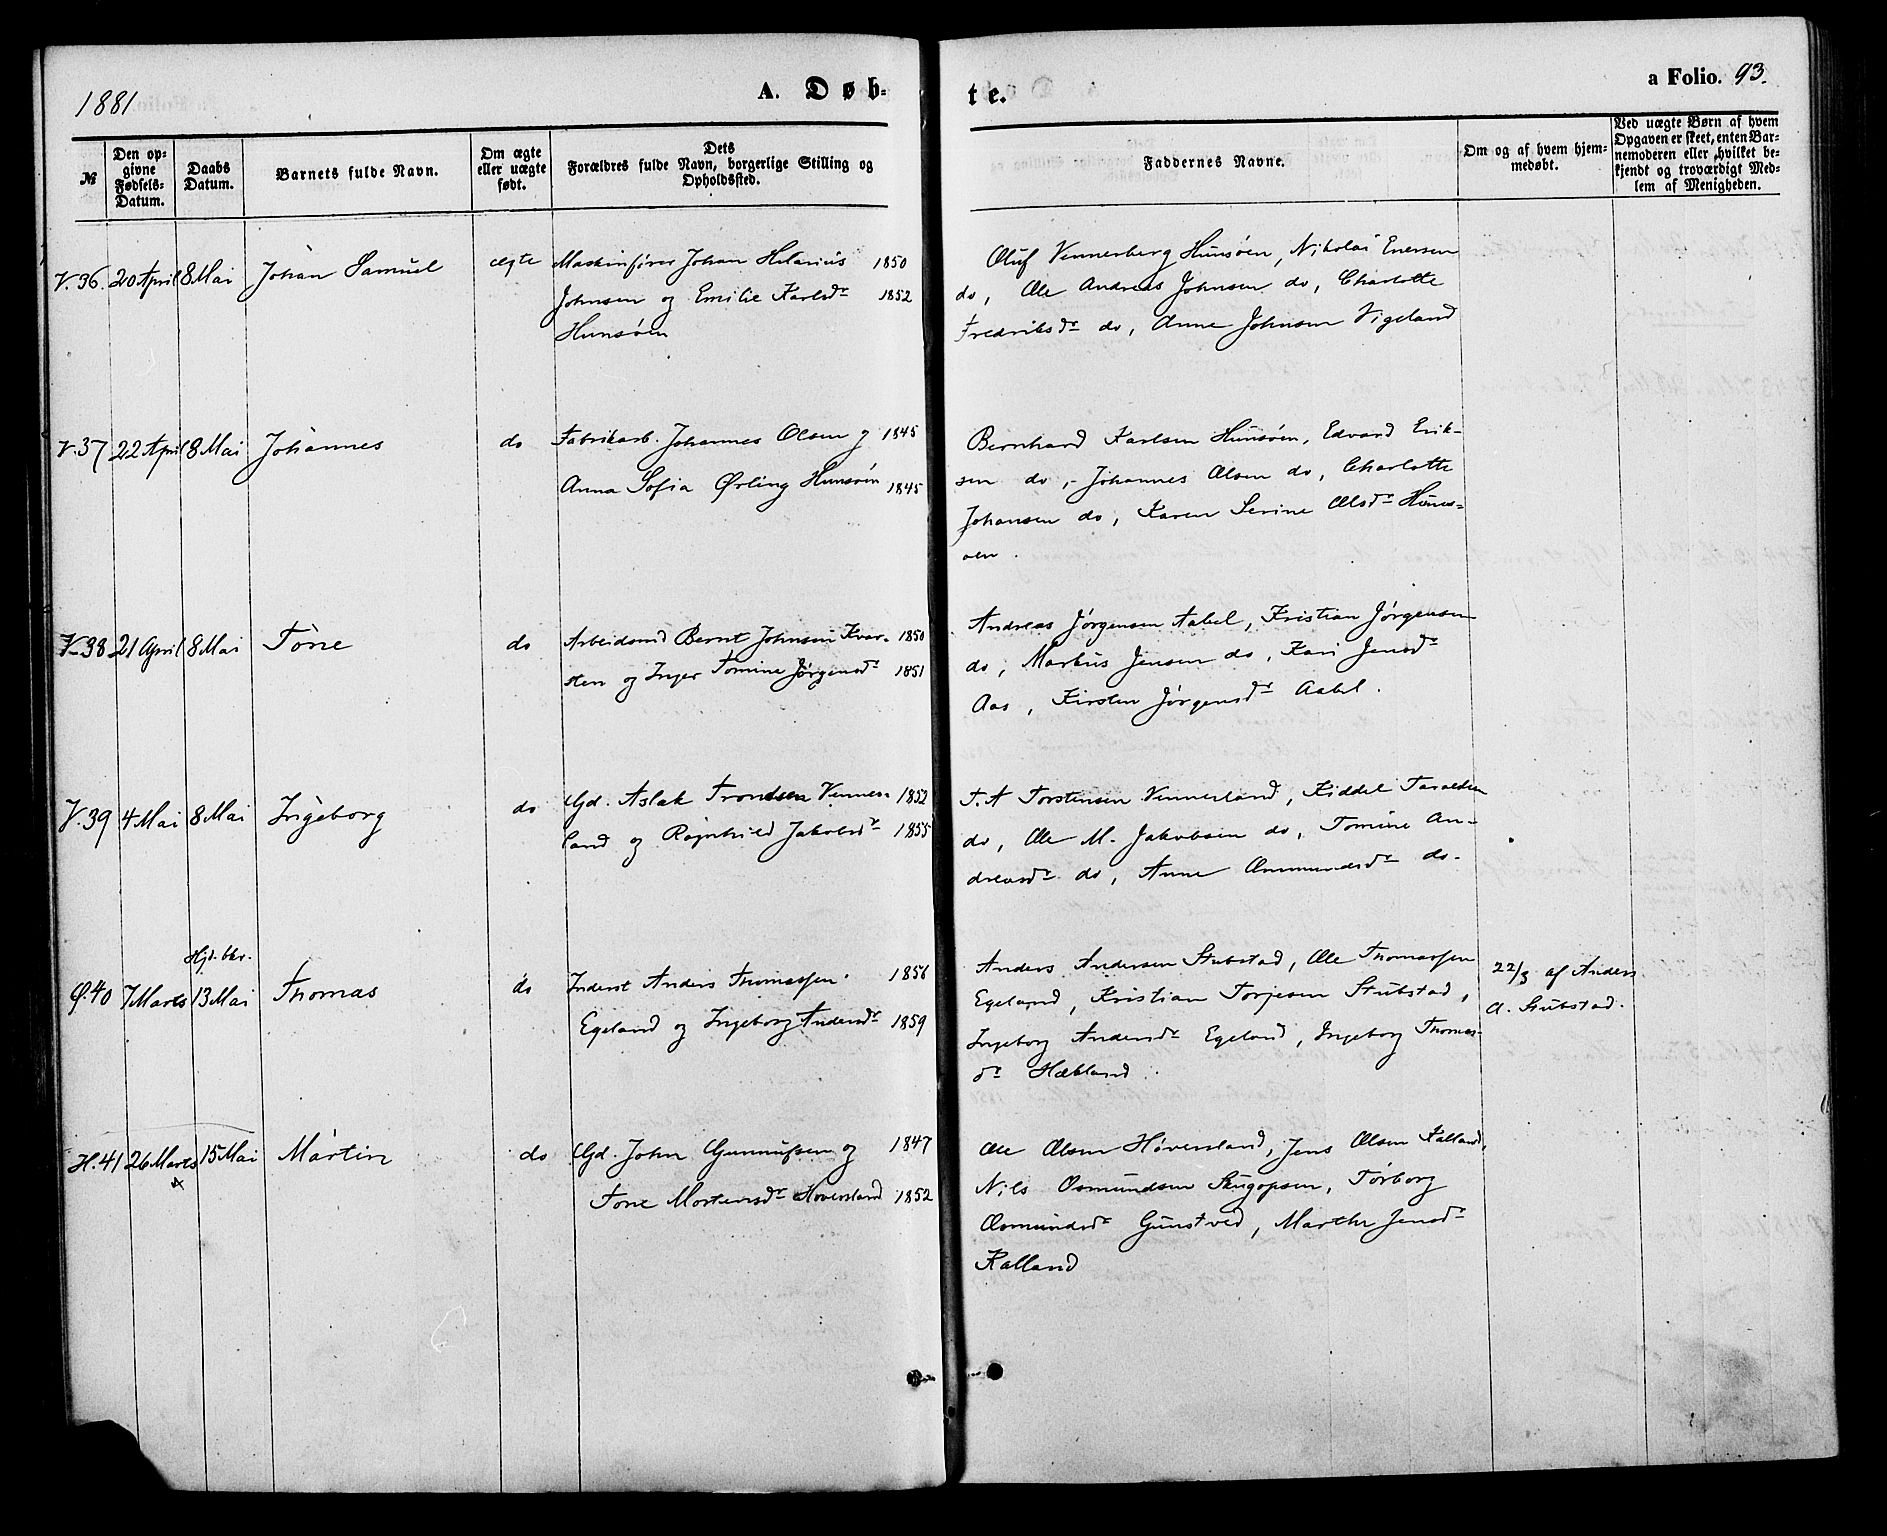 1881
A. Døb-
te.
a Folio. 93.
№
Den op-
givne
Fødsels-
Datum.
Daabs
Datum.
Barnets fulde Navn.
Om ægte
eller uægte
født.
Dets
Forældres fulde Navn, borgerlige Stilling og
Opholdssted.
Faddernes Navne.
Om og af hvem hjem-
medøbt.
Ved uægte Børn af hvem
Opgaven er skeet, enten Bar-
nemoderen eller hvilket be-
kjendt og troværdigt Med-
lem af Menigheden.
V. 36. 20 April 8 Mai Johan Samuel ægte
Maskinfører Johan Hilarius 1850
Johnsen og Emilie Karlsdr 1852
Hunsøen
Oluf Vennerberg Hunsøen, Nikolai Enersen
do, Ole Andreas Johnsen do, Charlotte
Fredriksdr do, Anne Johnsen Vigeland
V. 37 22 April 8 Mai Johannes do
Fabrikarb. Johannes Olsen og 1845
Anna Sofia Ørling Hunsøen 1845
Bernhard Karlsen Hunsøen, Edvard Erik-
sen do, Johannes Olsen do, Charlotte
Johansen do, Karen Serine Olsdr Huns-
øen.
V. 38 21 April 8 Mai Tone do
Arbeidsmd Bernt Johnsen Kvar- 1850
sten og Inger Tomine Jørgensdr 1851
Andreas Jørgensen Aabel, Kristian Jørgensen
do, Markus Jensen do, Kari Jensdr
Aas, Kirsten Jørgensdr Aabel.
V. 39 4 Mai 8 Mai Ingeborg do
Gd. Aslak Trondsen Vennes- 1852
land og Ragnhild Jakobsdr 1855
T. A Torstensen Vennesland, Kiddel Taraldsen
do, Ole M. Jakobsen do, Tomine An-
dreasdr do, Anne Ommundsdr do.
Hjd. bkr.
Ø. 40 7 Marts 13 Mai Thomas do
Inderst Anders Thomassen 1856
Egeland og Ingeborg Andersdr 1859
Anders Andersen Stubstad, Ole Thomassen
Egeland, Kristian Torjesen Stubstad,
Ingeborg Andersdr Egeland, Ingeborg Thomas-
dr Hæbland.
22/3 af Anders
A. Stubstad.
H. 41 26 Marts 15 Mai Martin do
Gd. John Gunnufsen og 1847
Tone Mortensdr Høversland 1852
Ole Olsen Høversland, Jens Olsen Kalland,
Nils Osmundsen Tørborg
Osmundsdr Gunstved, Marthe Jensdr
Kalland